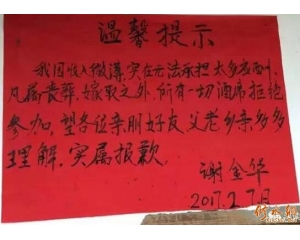 温馨提示
我因收入微薄实在无法承担太多应酬,
凡属丧葬、嫁取之外,所有一切酒席拒绝
参加,望各位亲朋好友父老乡亲多多
理解,实属报歉
谢金华
2017.2.7日